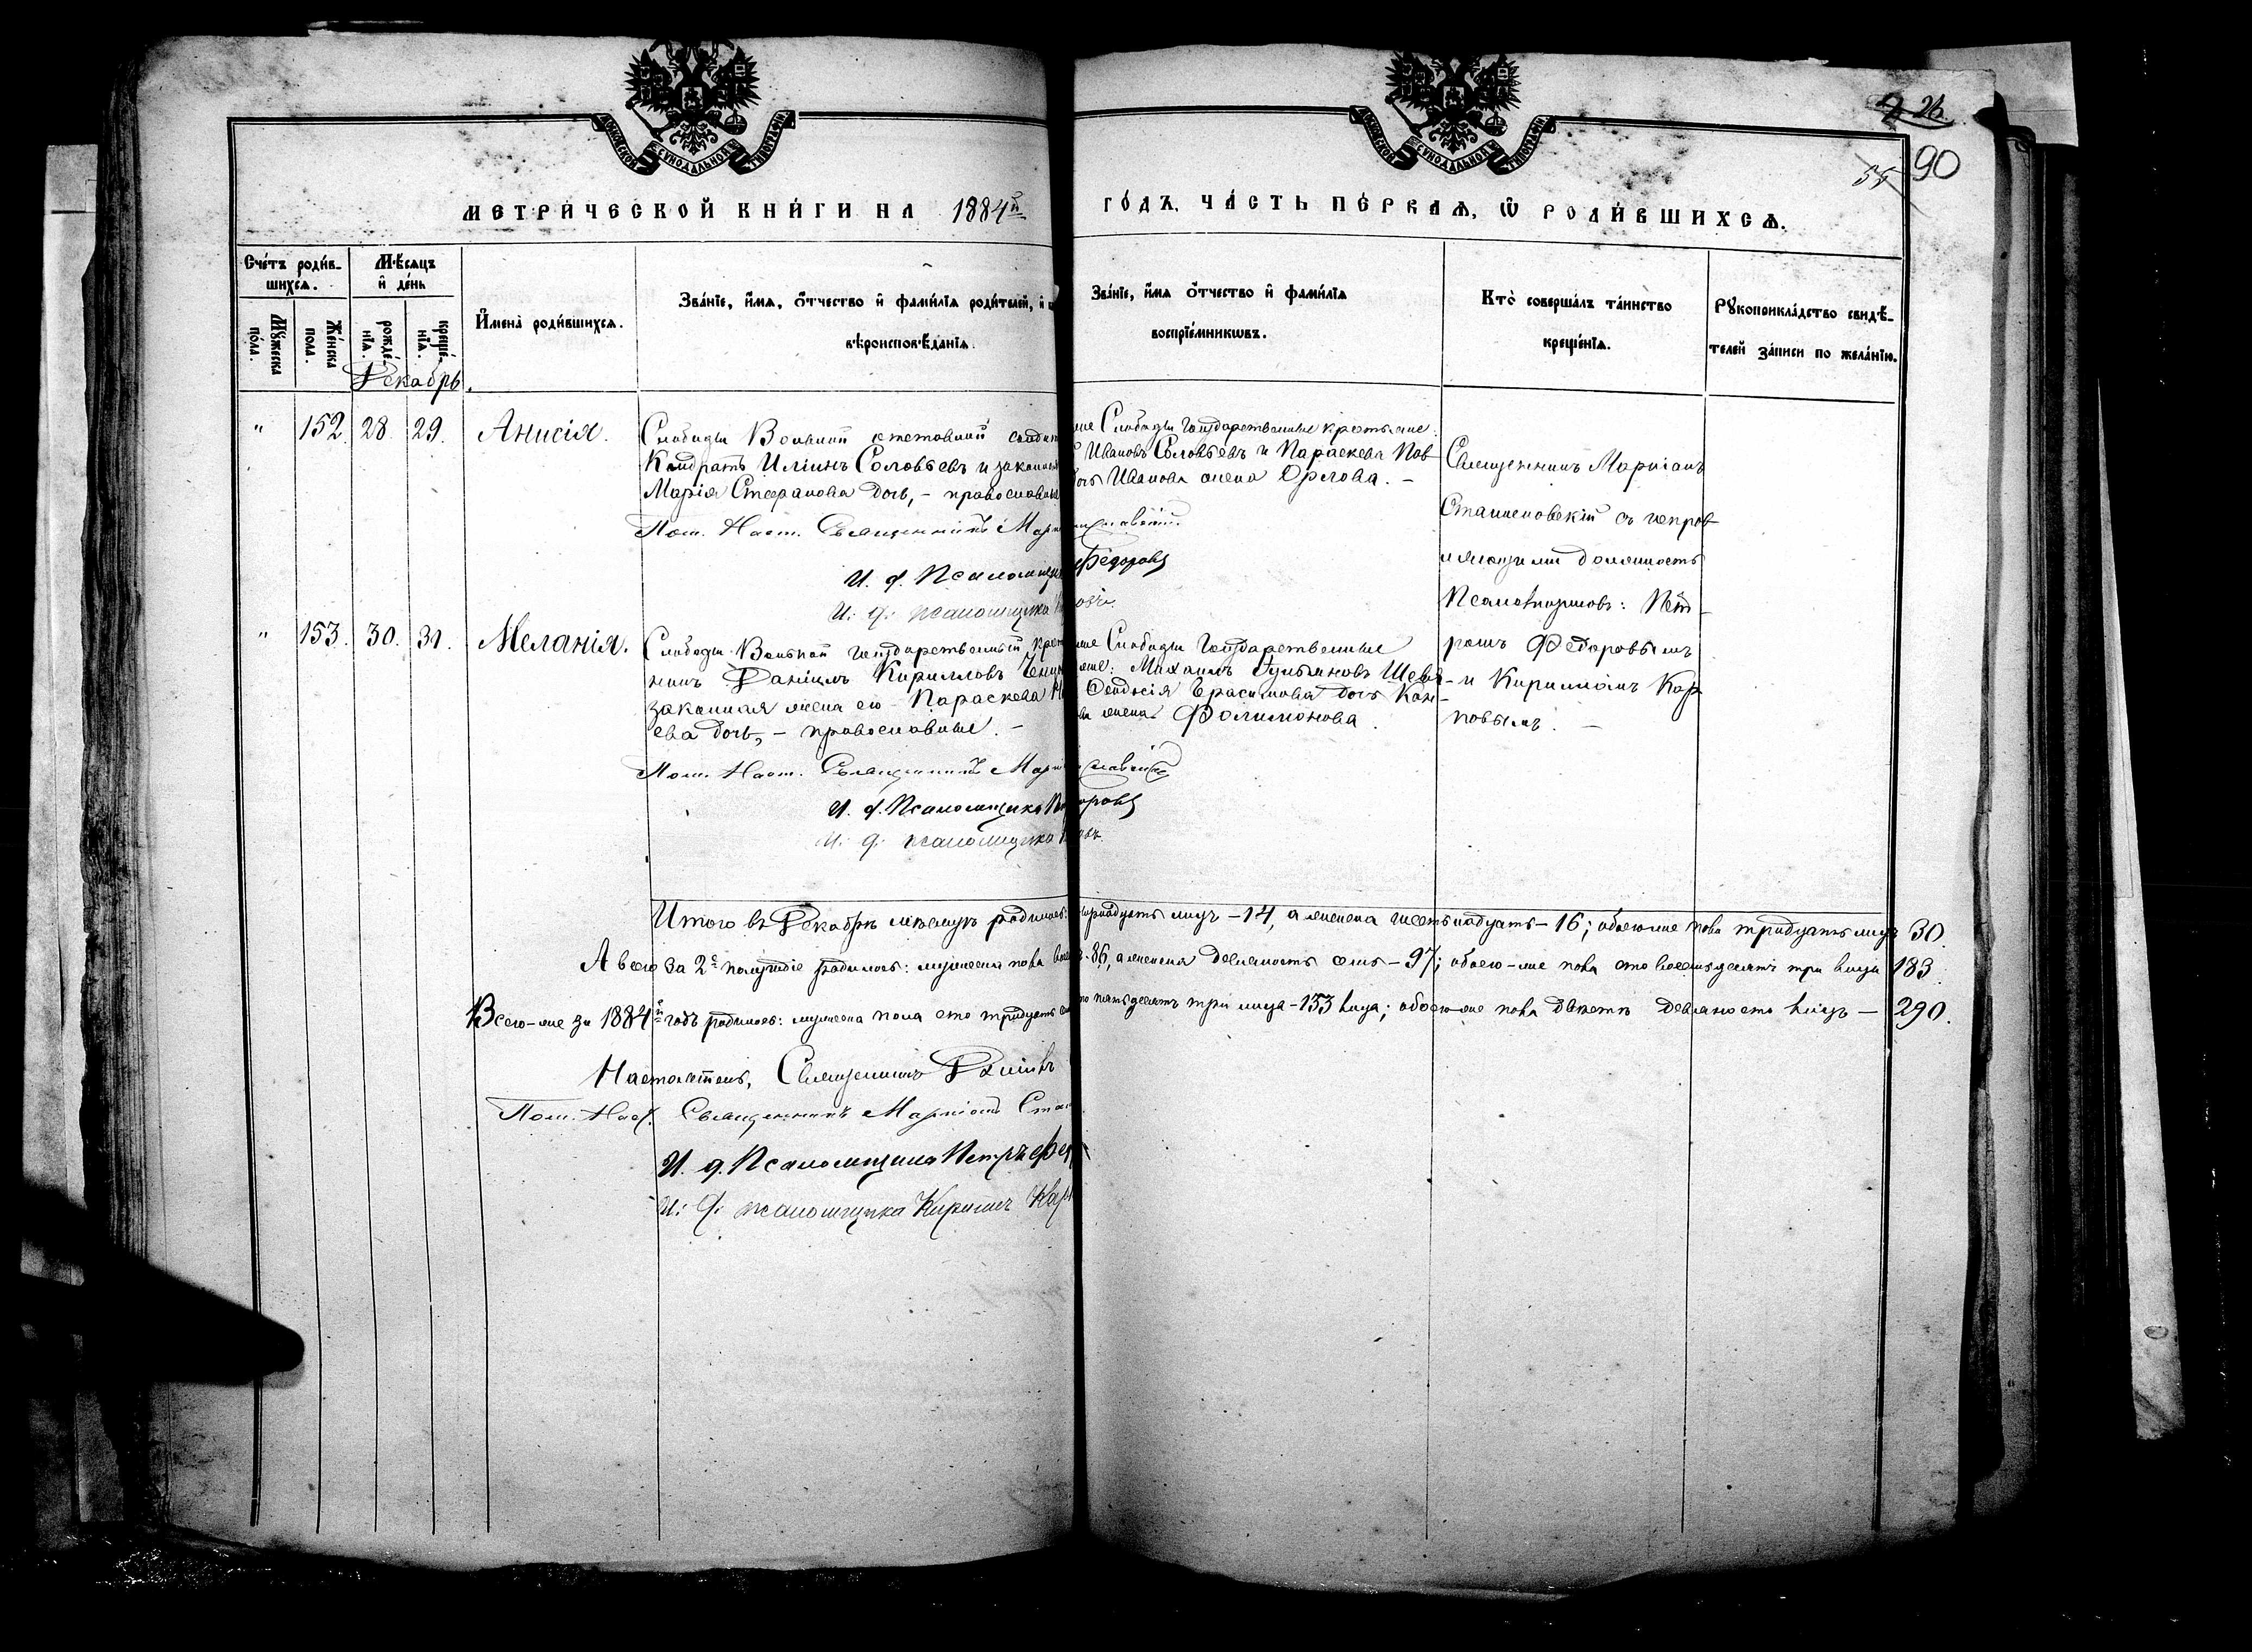 МОСКОВСКОЙ СѴНОДАЛЬНОЙ ТИПОГРАФІИ
МОСКОВСКОЙ СѴНОДАЛЬНОЙ ТИПОГРАФІИ
26.
55
90
МЕТРИЧЕСКОЙ КНИГИ НА 1884й
ГОДЪ, ЧАСТЬ ПЕРВАЯ, Ѡ РОДИВШИХСЯ.
Счетъ родив-
шихся.
Мужеска пола.
Женска пола.
Мѣсяцъ
и день
рожде-нія.
креще-нія.
Имена родившихся.
Званіе, имя, отчество и фамилія родителей, и
вѣроисповѣданія.
Званіе, имя отчество и фамилія
воспріемниковъ.
Кто совершалъ таинство
крещенія.
Рукоприкладство свидѣ-
телей записи по желанію.
Декабрь.
" 152. 28. 29. Анисія.
Слободы Вольной отставной
Кондратъ Иліинъ Соловьевъ и законная
Марія Стефанова дочь, – православные
Пом. Наст. Священникъ
И. д. Псаломщика
И. д. псаломщика
Слободы Государственные крестьяне:
Ивановъ Соловьевъ и Параскева
Иванова жена Орлова. –
Федоровъ
Священникъ Маркіанъ
Станиславскій съ исправ
ляющими должность
Псаломщиковъ: Пет-
ромъ Федоровымъ
и Кирилломъ Кар
повымъ. –
" 153. 30. 31. Меланія.
Слободы Вольной Государственный
нинъ Даніилъ Кирилловъ
законная жена его Параскева
ева дочь, – православные. –
Пом. Наст. Священникъ
И. д. Псаломщика
И. д. псаломщика
Слободы Государственные
Михаилъ
Феодосія Герасимова дочь
жена Филимонова.
Итого въ Декабрѣ мѣсяцѣ родилось: лицъ – 14, а женска шестнадцать – 16; обоего-же пола тридцать лицъ 30.
А всего за 2е полугодіе родилось: мужеска пола 86, а женска девяносто семь – 97; обоего-же пола сто восемьдесятъ три лица 183.
Всего-же за 1884й годъ родилось: мужеска пола сто тридцать пятьдесятъ три лица – 153 лица; обоего-же пола двѣсти девяносто лицъ – 290.
Настоятель, Священникъ
Пом. Наст. Священникъ Маркіанъ
И. д. Псаломщика Петръ
И. д. псаломщика Кириллъ